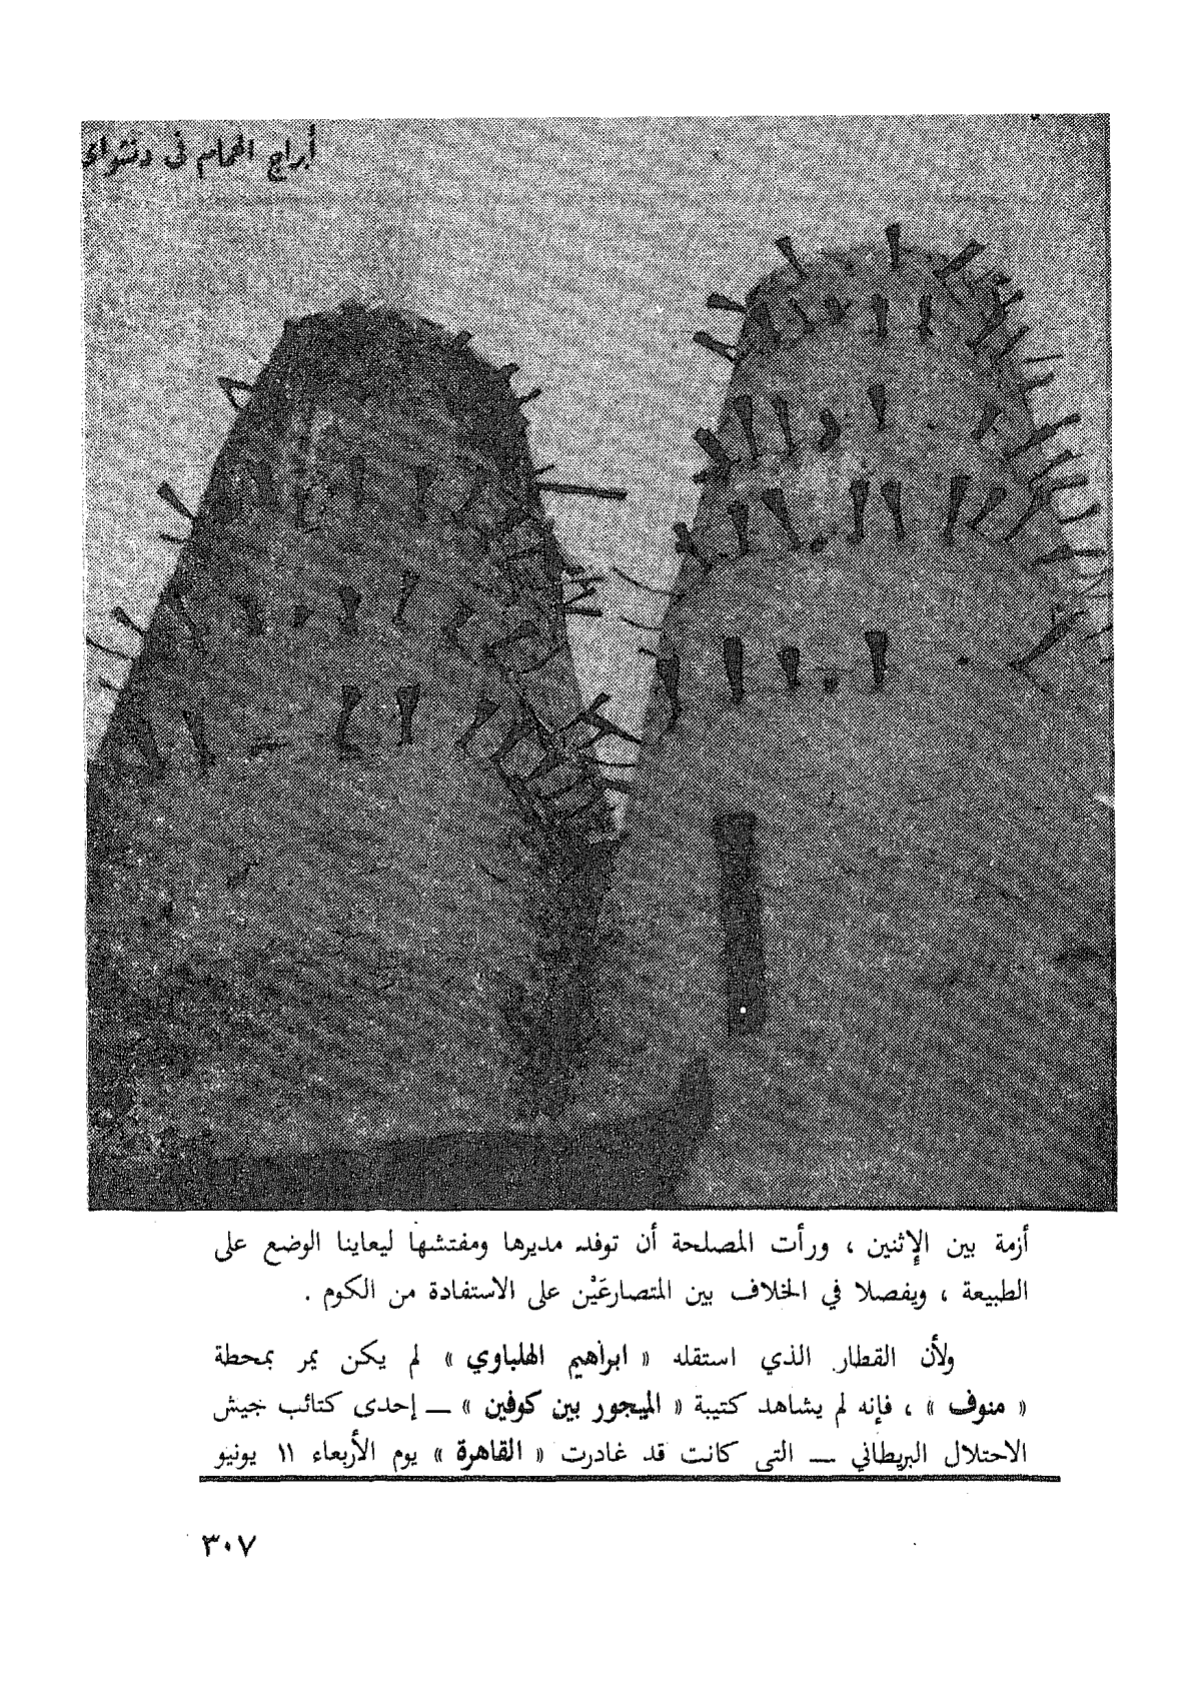 أبراج الحمام فى دنشواى
أزمة بين الإثنين ، ورأت المصلحة أن توفد مديرها ومفتشها ليعاينا الوضع على
الطبيعة ، ويفصلا في الخلاف بين المتصارعَيْن على الاستفادة من الكوم .
ولأن القطار الذي استقله « ابراهيم الهلباوي » لم يكن يمر بمحطة
« منوف » ، فإنه لم يشاهد كتيبة « الميجور بين كوفين » — إحدى كتائب جيش
الاحتلال البريطاني — التي كانت قد غادرت « القاهرة » يوم الأربعاء ١١ يونيو
٣٠٧